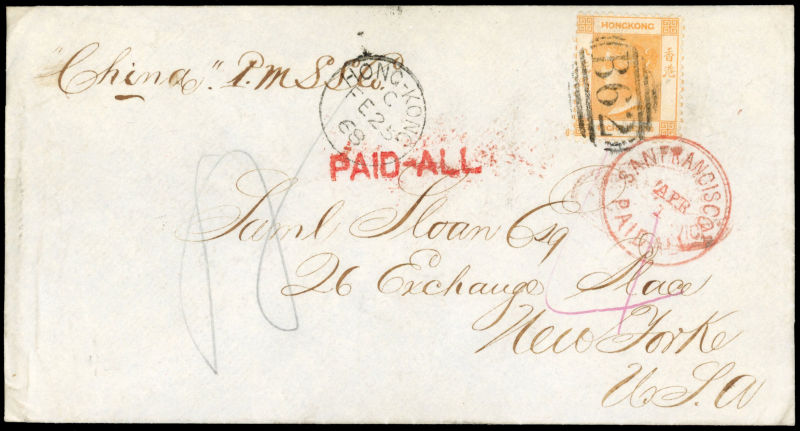 "China" P.M.S.S.Co.
HONG-KONG
C
FE 25
68
HONGKONG
香港
B62
PAID-ALL
SAN FRANCISCO
APR
PAID
Saml Sloan Esq
26 Exchange Place
New Yorke
U.S.A